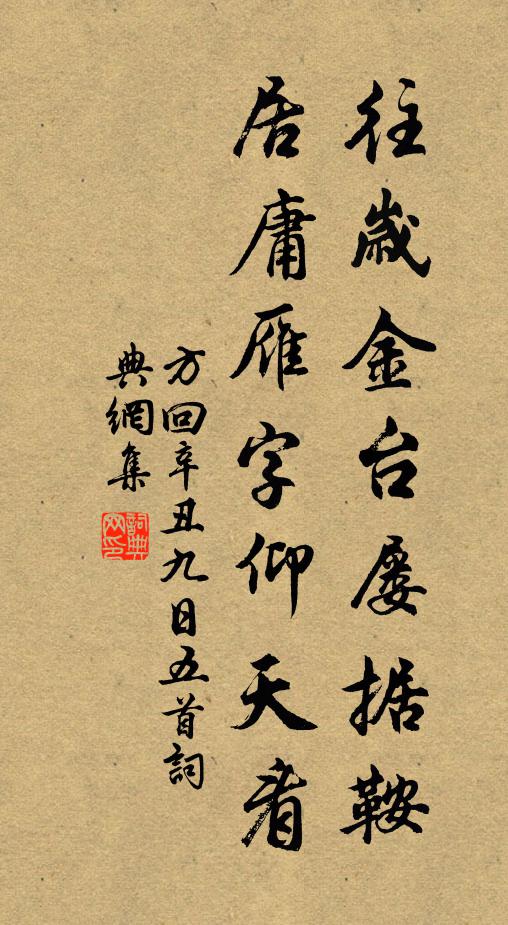 往歲金台屢据鞍
居庸雁字仰天看
方回辛丑九日五首詞
典網集
詞典网印